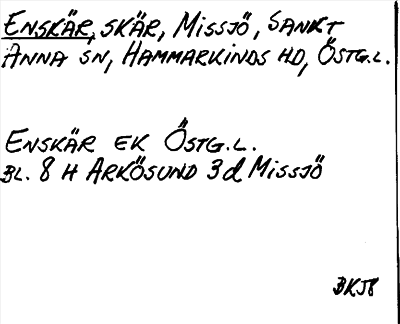 ENSKÄR, SKÄR, MISSJÖ, SANKT
ANNA SN, HAMMARKINDS HD, ÖSTG.L.
ENSKÄR EK ÖSTG.L.
BL. 8 H ARKÖSUND 3d MISSJÖ
BKJ8